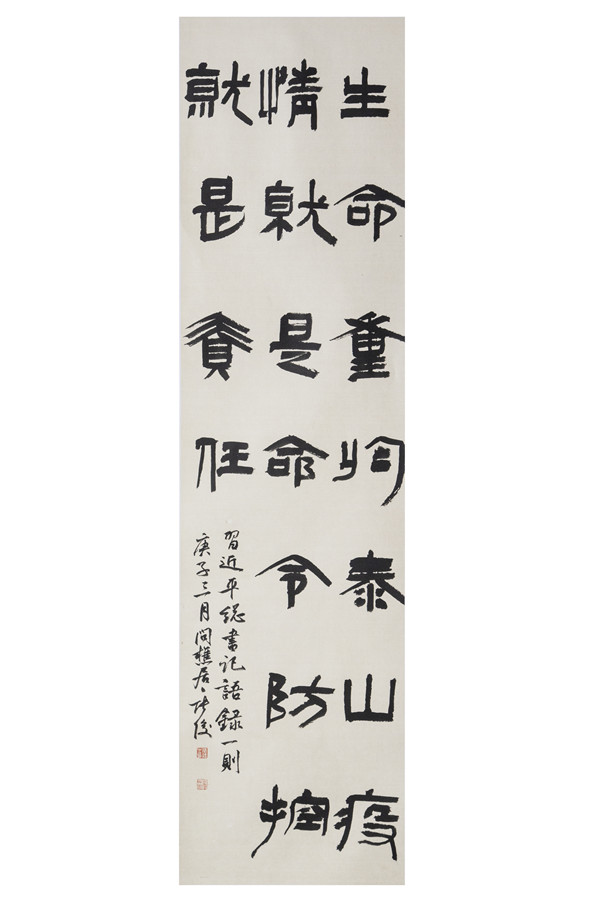 生命重於泰山疫
情就是命令防控
就是責任
習近平總書記語錄一則
庚子三月問樵居張